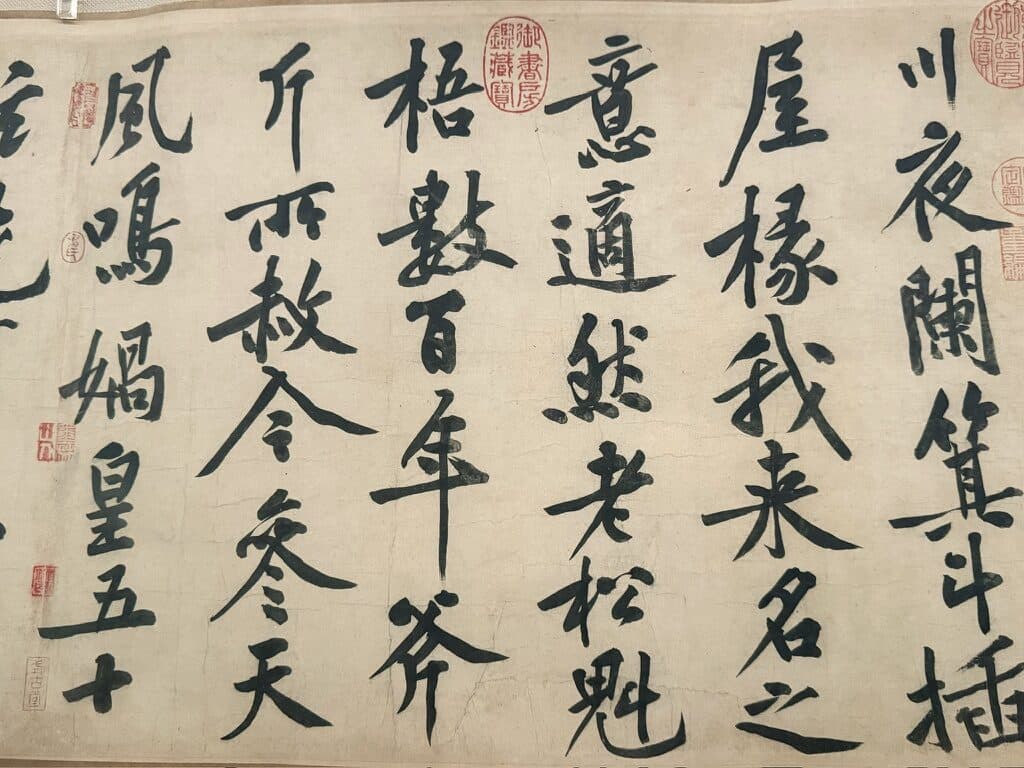 川夜闌箕斗插
屋椽我来名之
意適然老松魁
梧數百年斧
斤所赦今參天
風鳴媧皇五十
御書房鑑藏寶
式古堂